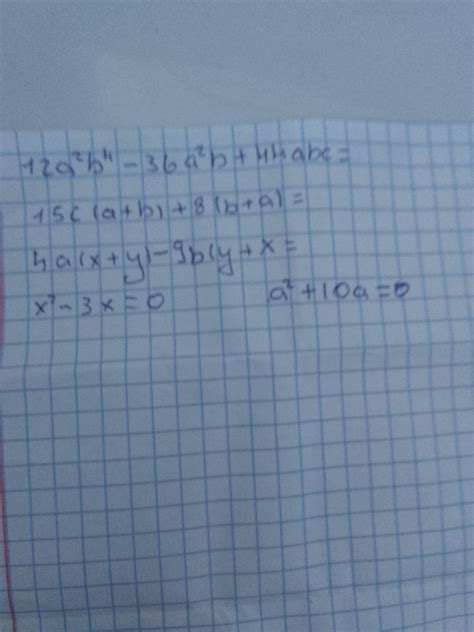 12a²b⁴ - 36a²b + 44abc =
15c(a+b) + 8(b+a) =
4a(x+y) - 9b(y+x =
x² - 3x = 0 a² + 10a = 0